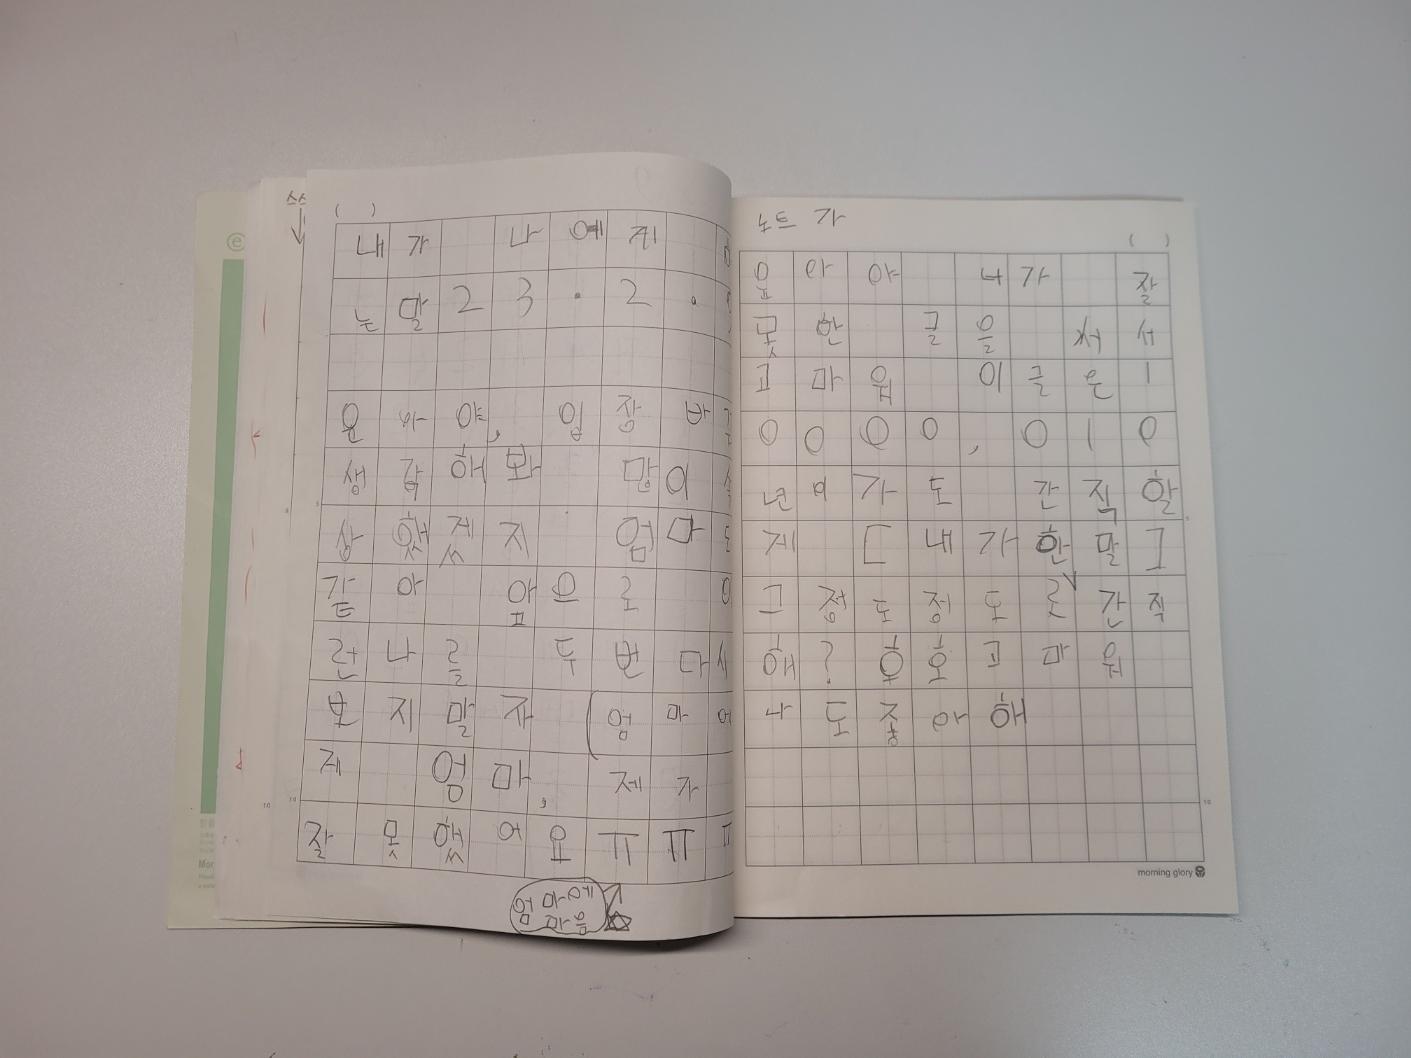 스스
( )
내가 나에게
는 말 23.2.
윤아야, 입장 바
생각해봐 많이
상했겠지 엄마
같아 앞으로
런 나를 두번 다
보지 말자 (엄마
제 엄마, 제가
잘못했어요 ㅠㅠㅠ
엄마의
마음
노트 가
( )
윤아야 너가 잘
못한 글을 써서
고마워 이글은 1
0000,010
년이 가도 간직할
게 [내가한말]
그정도정도로 간직
해? 호호고마워
나도좋아해
morning glory
10
10
10
Mor